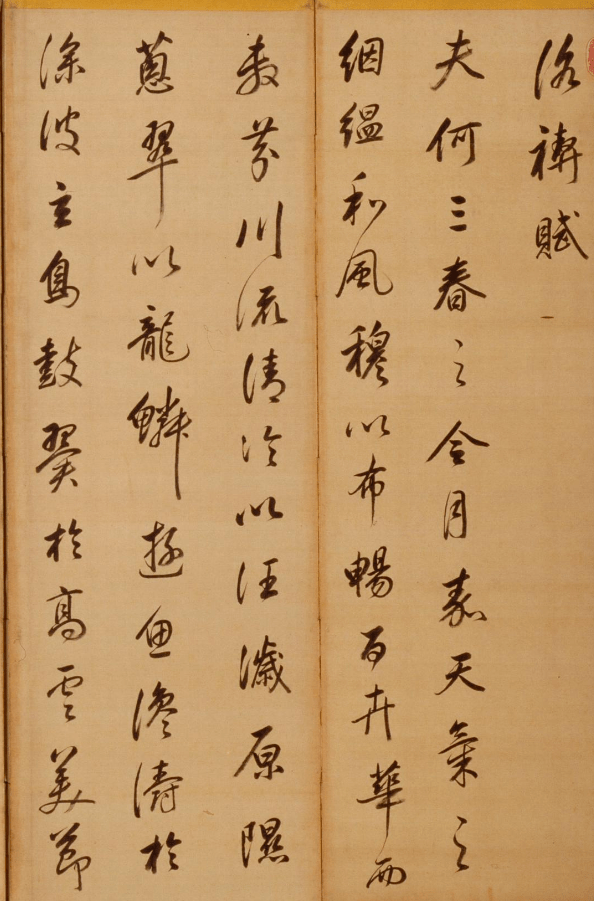 洛禊賦
夫何三春之令月嘉天氣之
絪縕和風穆以布暢百卉華而
敷芬川流清泠以汪濊原隰
蔥翠以龍鱗遊魚濤於
波玄鳥鼓翼於高雲美節